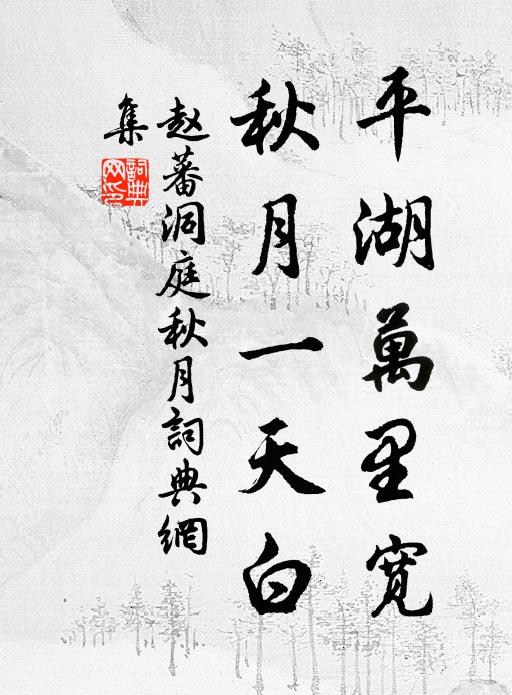 平湖萬里寬
秋月一天白
赵蕃洞庭秋月詞典網
集
詞典網